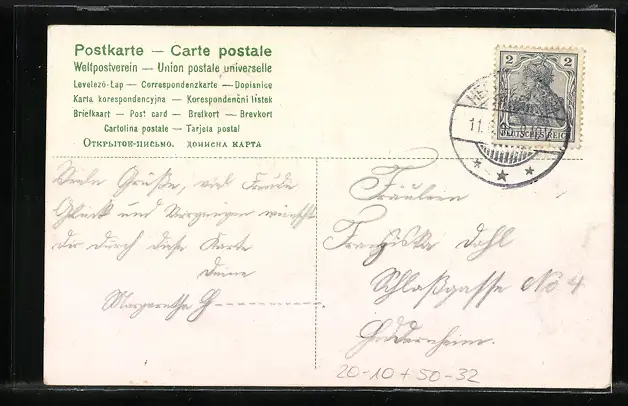 Postkarte — Carte postale
Weltpostverein — Union postale universelle
Levelező-Lap — Correspondenzkarte — Dopisnice
Karta korespondencyjna — Korespondenční lístek
Briefkaart — Post card — Bretkort — Brevkort
Cartolina postale — Tarjeta postal
Открытое письмо. ДОПИСНА КАРТА
2 2
DEUTSCHES REICH
11.
Viele Grüße, viel Freude
Glück und Vergnügen wünscht
Dir durch diese Karte
Deine
Margarethe G
Fräulein
Franziska Dahl
Schloßgasse No 4
Heddernheim.
20-10+50-32